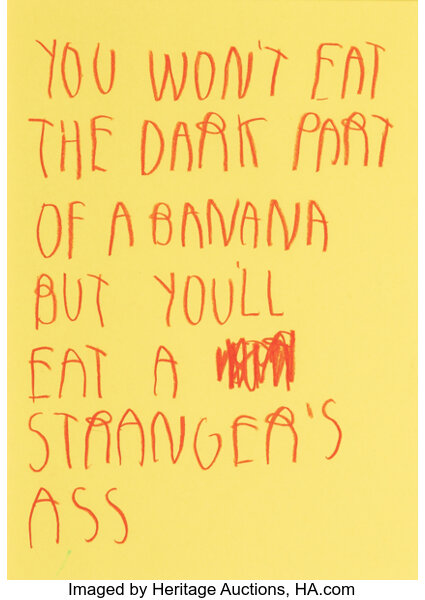 YOU WON'T EAT
THE DARK PART
OF A BANANA
BUT YOU'LL
EAT A
STRANGER'S
ASS
Imaged by Heritage Auctions, HA.com